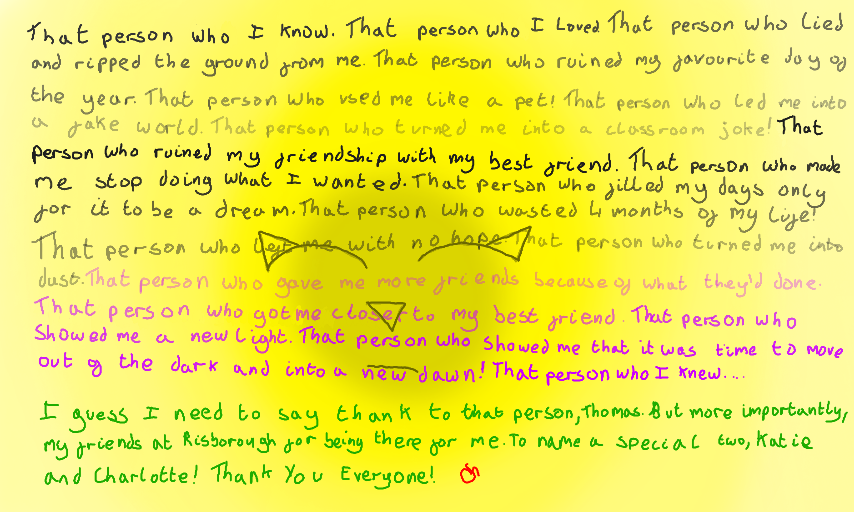 That person who I know. That person who I Loved That person who Lied
and ripped the ground from me. That person who ruined my favourite day of
the year. That person who used me like a pet! That person who Led me into
a fake world. That person who turned me into a classroom joke! That
person who ruined my friendship with my best friend. That person who made
me stop doing what I wanted. That person who filled my days only
for it to be a dream. That person who wasted 4 months of my life!
That person who left me with no hope. That person who turned me into
dust. That person who gave me more friends because of what they'd done.
That person who got me closer to my best friend. That person who
Showed me a new light. That person who showed me that it was time to move
out of the dark and into a new dawn! That person who I knew....
I guess I need to say thank to that person, Thomas. But more importantly,
my friends at Risborough for being there for me. To name a special two, Katie
and Charlotte! Thank You Everyone!